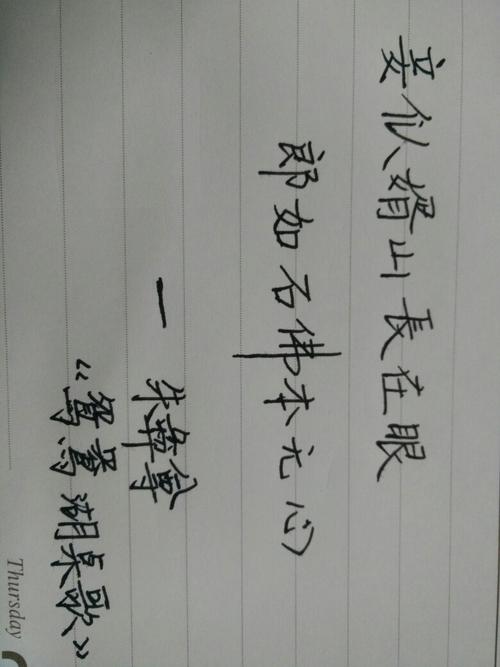 妾似婿山長在眼
郎如石佛本无心
—朱彝尊
《鸳鸯湖桌歌》
Thursday